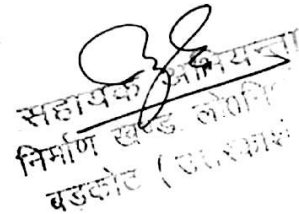 सहायक अभियन्ता
निर्माण खण्ड, लो०नि
बड़कोट (उत्तरकाशी